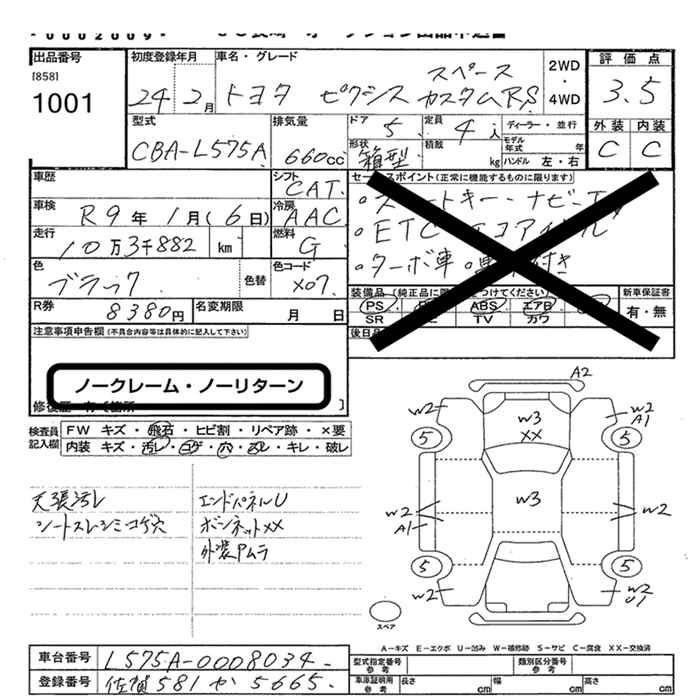 00002009
出品番号
[858]
1001
初度登録年月
24年2月
車名・グレード
トヨタ ピクシス スペース カスタムRS
2WD
・
4WD
評価点
3.5
型式
CBA-L575A
排気量
660cc
ドア
5
定員
4人
形状
箱型
積載
kg
ディーラー・並行
モデル年式 年
ハンドル 左・右
外装 内装
C C
車歴
シフト
CAT
セールスポイント(正常に機能するものに限ります)
車検
R9年1月(6日)
冷房
AAC
走行
10万3千882 km
燃料
G
・ETC
・ターボ車
色
ブラック
色替
色コード
X07
装備品
新車保証書
有・無
PS
ABS
エアB
SR
TV
カワ
R券
8380円
名変期限
月 日
後日
注意事項申告欄(不具合内容等は具体的に記入して下さい)
ノークレーム・ノーリターン
検査員記入欄
FW キズ・飛石・ヒビ割・リペア跡・×要
内装 キズ・汚レ・コゲ・穴・スレ・キレ・破レ
天張汚レ
シートスレシミコゲ穴
エンドパネルU
ボンネットXX
外装Pムラ
A2
W2
W3
XX
W2
A1
5
5
W3
W2
A1
W2
5
5
W2
W2
U1
スペア
A-キズ E-エクボ U-凹み W-補修跡 S-サビ C-腐食 XX-交換済
車台番号
L575A-0008034
登録番号
佐賀581か5665
型式指定番号
参考
類別区分番号
参考
車庫証明用
参考
長さ
cm
幅
cm
高さ
cm